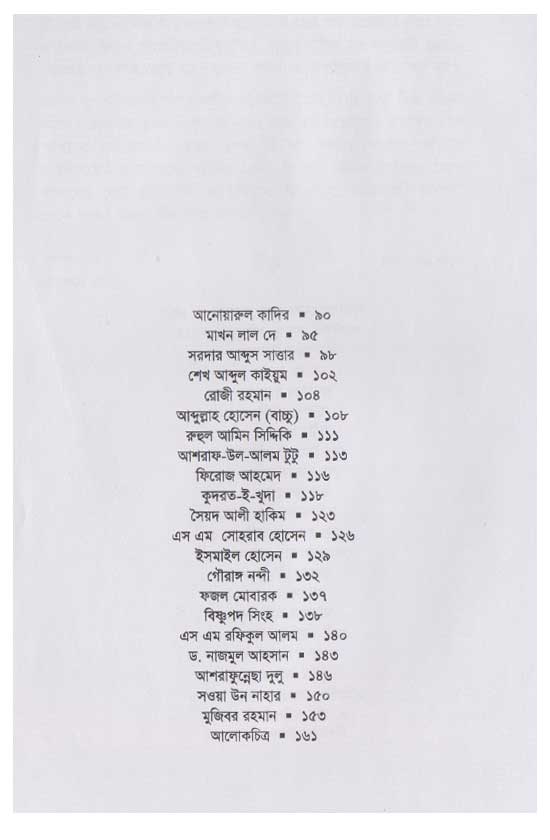 আনোয়ারুল কাদির ▪ ৯০
মাখন লাল দে ▪ ৯৫
সরদার আব্দুস সাত্তার ▪ ৯৮
শেখ আব্দুল কাইয়ুম ▪ ১০২
রোজী রহমান ▪ ১০৪
আব্দুল্লাহ হোসেন (বাচ্চু) ▪ ১০৮
রুহুল আমিন সিদ্দিকি ▪ ১১১
আশরাফ-উল-আলম টুটু ▪ ১১৩
ফিরোজ আহমেদ ▪ ১১৬
কুদরত-ই-খুদা ▪ ১১৮
সৈয়দ আলী হাকিম ▪ ১২৩
এস এম সোহরাব হোসেন ▪ ১২৬
ইসমাইল হোসেন ▪ ১২৯
গৌরাঙ্গ নন্দী ▪ ১৩২
ফজল মোবারক ▪ ১৩৭
বিষ্ণুপদ সিংহ ▪ ১৩৮
এস এম রফিকুল আলম ▪ ১৪০
ড. নাজমুল আহসান ▪ ১৪৩
আশরাফুন্নেছা দুলু ▪ ১৪৬
সওয়া উন নাহার ▪ ১৫০
মুজিবর রহমান ▪ ১৫৩
আলোকচিত্র ▪ ১৬১